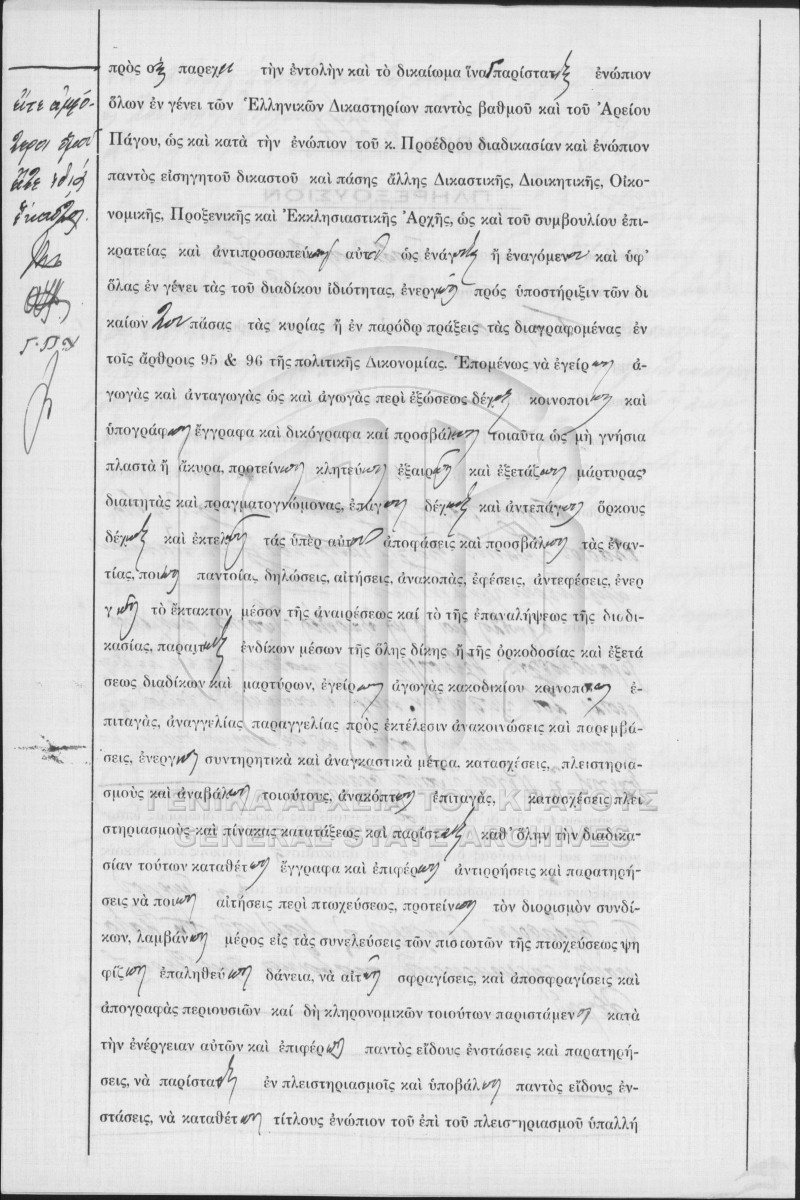 εἴτε ἀμφό-
τεροι ὁμοῦ
εἴτε ἰδίᾳ
ἕκαστος.
πρὸς οὓς παρεχει τὴν ἐντολὴν καὶ τὸ δικαίωμα ἵνα παρίστανται ἐνώπιον
ὅλων ἐν γένει τῶν Ἑλληνικῶν Δικαστηρίων παντὸς βαθμοῦ καὶ τοῦ Ἀρείου
Πάγου, ὡς καὶ κατὰ τὴν ἐνώπιον τοῦ κ. Προέδρου διαδικασίαν καὶ ἐνώπιον
παντὸς εἰσηγητοῦ δικαστοῦ καὶ πάσης ἄλλης Δικαστικῆς, Διοικητικῆς, Οἰκο-
νομικῆς, Προξενικῆς καὶ Ἐκκλησιαστικῆς Ἀρχῆς, ὡς καὶ τοῦ συμβουλίου ἐπι-
κρατείας καὶ ἀντιπροσωπεύωσι αὐτὸν ὡς ἐνάγοντα ἢ ἐναγόμενον καὶ ὑφ'
ὅλας ἐν γένει τὰς τοῦ διαδίκου ἰδιότητας, ἐνεργῶσι πρός ὑποστήριξιν τῶν δι
καίων του πάσας τὰς κυρίας ἢ ἐν παρόδῳ πράξεις τὰς διαγραφομένας ἐν
τοῖς ἄρθροις 95 & 96 τῆς πολιτικῆς Δικονομίας. Ἑπομένως νὰ ἐγείρωσι ἀ-
γωγὰς καὶ ἀνταγωγὰς ὡς καὶ ἀγωγὰς περὶ ἐξώσεως δέχωνται κοινοποιῶσι καὶ
ὑπογράφωσι ἔγγραφα καὶ δικόγραφα καί προσβάλωσι τοιαῦτα ὡς μὴ γνήσια
πλαστὰ ἢ ἄκυρα, προτείνωσι κλητεύωσι ἐξαιρῶσι καὶ ἐξετάζωσι μάρτυρας
διαιτητὰς καὶ πραγματογνώμονας, ἐπάγωσι δέχωνται καὶ ἀντεπάγωσι ὅρκους
δέχωνται καὶ ἐκτελῶσι τάς ὑπὲρ αὐτοῦ ἀποφάσεις καὶ προσβάλωσι τὰς ἐναν-
τίας, ποιῶσι παντοίας δηλώσεις, αἰτήσεις, ἀνακοπὰς, ἐφέσεις, ἀντεφέσεις, ἐνερ
γῶσι τὸ ἔκτακτον μέσον τῆς ἀναιρέσεως καί τὸ τῆς ἐπαναλήψεως τῆς διαδι-
κασίας, παραιτῶνται ἐνδίκων μέσων τῆς ὅλης δίκης ἢ τῆς ὁρκοδοσίας καὶ ἐξετά
σεως διαδίκων καὶ μαρτύρων, ἐγείρωσι ἀγωγὰς κακοδικίου κοινοποιῶσι ἐ-
πιταγὰς, ἀναγγελίας παραγγελίας πρὸς ἐκτέλεσιν ἀνακοινώσεις καὶ παρεμβά-
σεις, ἐνεργῶσι συντηρητικὰ καὶ ἀναγκαστικὰ μέτρα, κατασχέσεις, πλειστηρια-
σμοὺς καὶ ἀναβάλωσι τοιούτους, ἀνακόπτωσι ἐπιταγὰς, κατασχέσεις πλει
στηριασμοὺς καὶ πίνακας κατατάξεως καὶ παρίστανται καθ' ὅλην τὴν διαδικα-
σίαν τούτων καταθέτωσι ἔγγραφα καὶ ἐπιφέρωσι ἀντιρρήσεις καὶ παρατηρή-
σεις νὰ ποιῶσι αἰτήσεις περὶ πτωχεύσεως, προτείνωσι τὸν διορισμὸν συνδί-
κων, λαμβάνωσι μέρος εἰς τὰς συνελεύσεις τῶν πιστωτῶν τῆς πτωχεύσεως ψη
φίζωσι ἐπαληθεύωσι δάνεια, νὰ αἰτῶσι σφραγίσεις, καὶ ἀποσφραγίσεις καὶ
ἀπογραφὰς περιουσιῶν καί δὴ κληρονομικῶν τοιούτων παριστάμενοι κατὰ
τὴν ἐνέργειαν αὐτῶν καὶ ἐπιφέρωσι παντὸς εἴδους ἐνστάσεις καὶ παρατηρή-
σεις, νὰ παρίστανται ἐν πλειστηριασμοῖς καὶ ὑποβάλωσι παντὸς εἴδους ἐν-
στάσεις, νὰ καταθέτωσι τίτλους ἐνώπιον τοῦ ἐπὶ τοῦ πλειστηριασμοῦ ὑπαλλή
ΓΕΝΙΚΑ ΑΡΧΕΙΑ ΤΟΥ ΚΡΑΤΟΥΣ
GENERAL STATE ARCHIVES